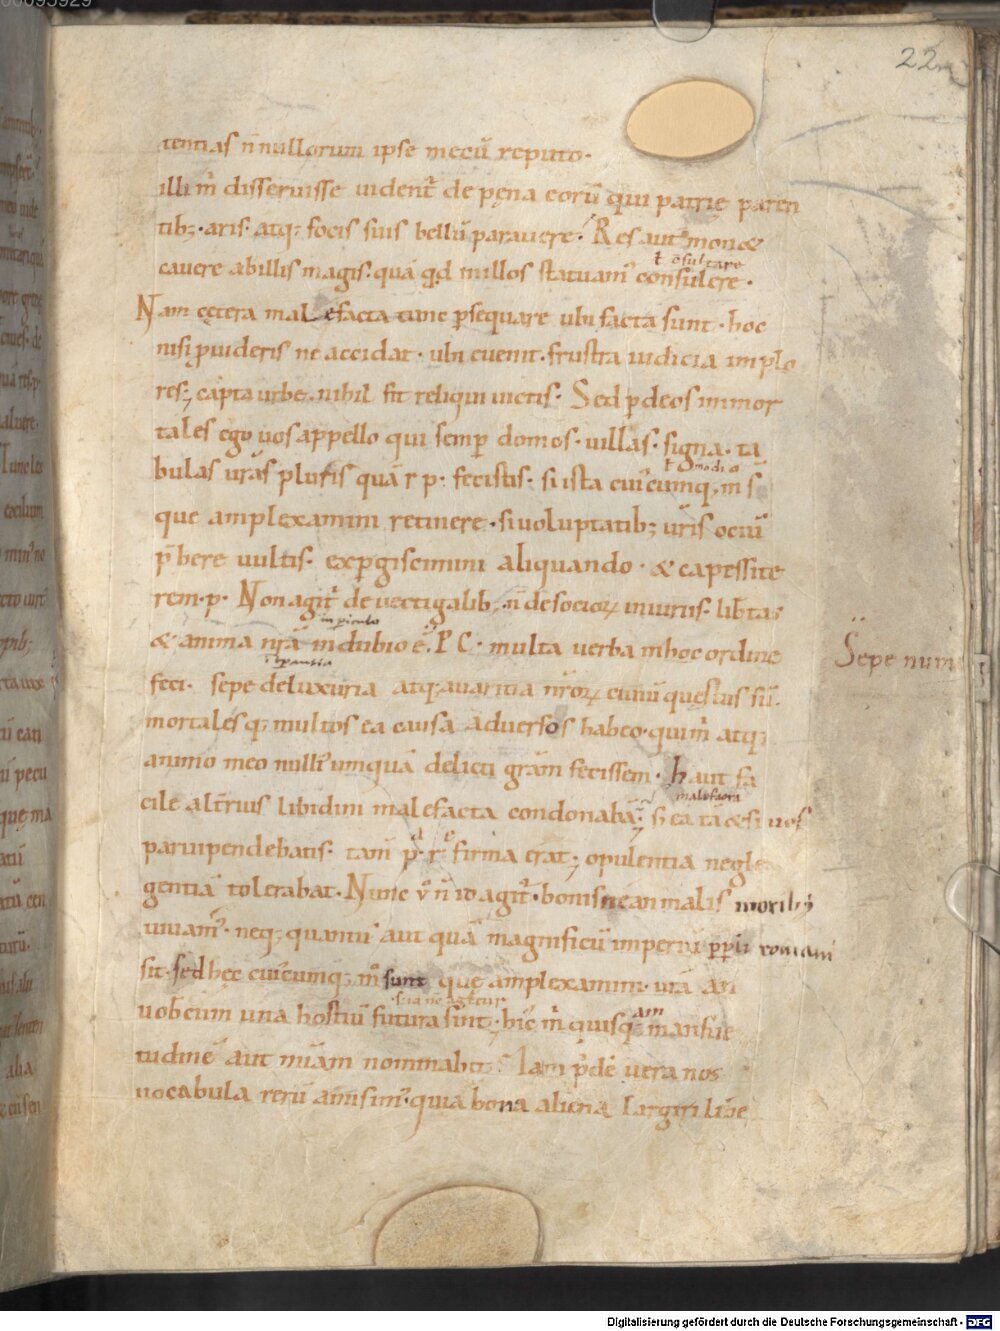 00095929
22
tentias ñ nullorum ipse mecū reputo·
illi m̄ disseruisse uidenť de pęna eorū qui patrię paren
tib;·aris·atq; focis suis bellū parauere· Res aut monet
ł cōsultare
cauere ab illis magis·quā qd in illos statuam᾿ consulere·
Nam cętera malefacta tunc p̲sequare ubi facta sunt· hoc
nisi p̲uideris ne accidat· ubi euenit·frustra iudicia implo
res; capta urbe·nihil fit reliqui uictis· Sed p̲ deos immor
tales ego uos appello qui semp̲ domos·uillas·signa·ta
bulas ur̄as pluris quā r p· fecistis· si ista cuiᷤcumq; m s̄
ł modi
que amplexamini retinere·si uoluptatib; ur̄is ociū
p̄bere uultis· exp̲giscimini aliquando· & capessite
rem·p· Non agiť de uectigalib;·ñ de socioꝝ iniuriis· lib̄tas
in piculo
& anima nr̄a in dubio ē· P C· multa uerba in hoc ordine
feci· sepe de luxuria atq; auaritia nr̄oꝝ ciuiū questus sū·
mortalesq; multos ea causa aduersos habeo·qui m̄ atq;
animo meo nulli᾿ umquā delicti grām fecissem· haut fa
malefacta
cile alt̄ius libidini malefacta condonabā; s; ea tā&si uos
paruipendebatis· tam̄ p· r· firma erat; opulentia negle
gentiā tolerabat·Nunc ū ñ id agiť·bonis ne an malis morib;
uiuam᾿·neq; quantū aut quā magnificū imperiū p̲p̲li romani
sit·sed hęc cui᾿cumq; m̄ sunt que amplexamini· ur̄a an
uobcum una hostiū futura sint·hic m̄ quisq; mansue
am
tudine aut mīam nominabit· Iam p̄dē uera nos
uocabula rerū amisim᾿·quia bona aliena largiri libe
Sepe num
Digitalisierung gefördert durch die Deutsche Forschungsgemeinschaft - DFG